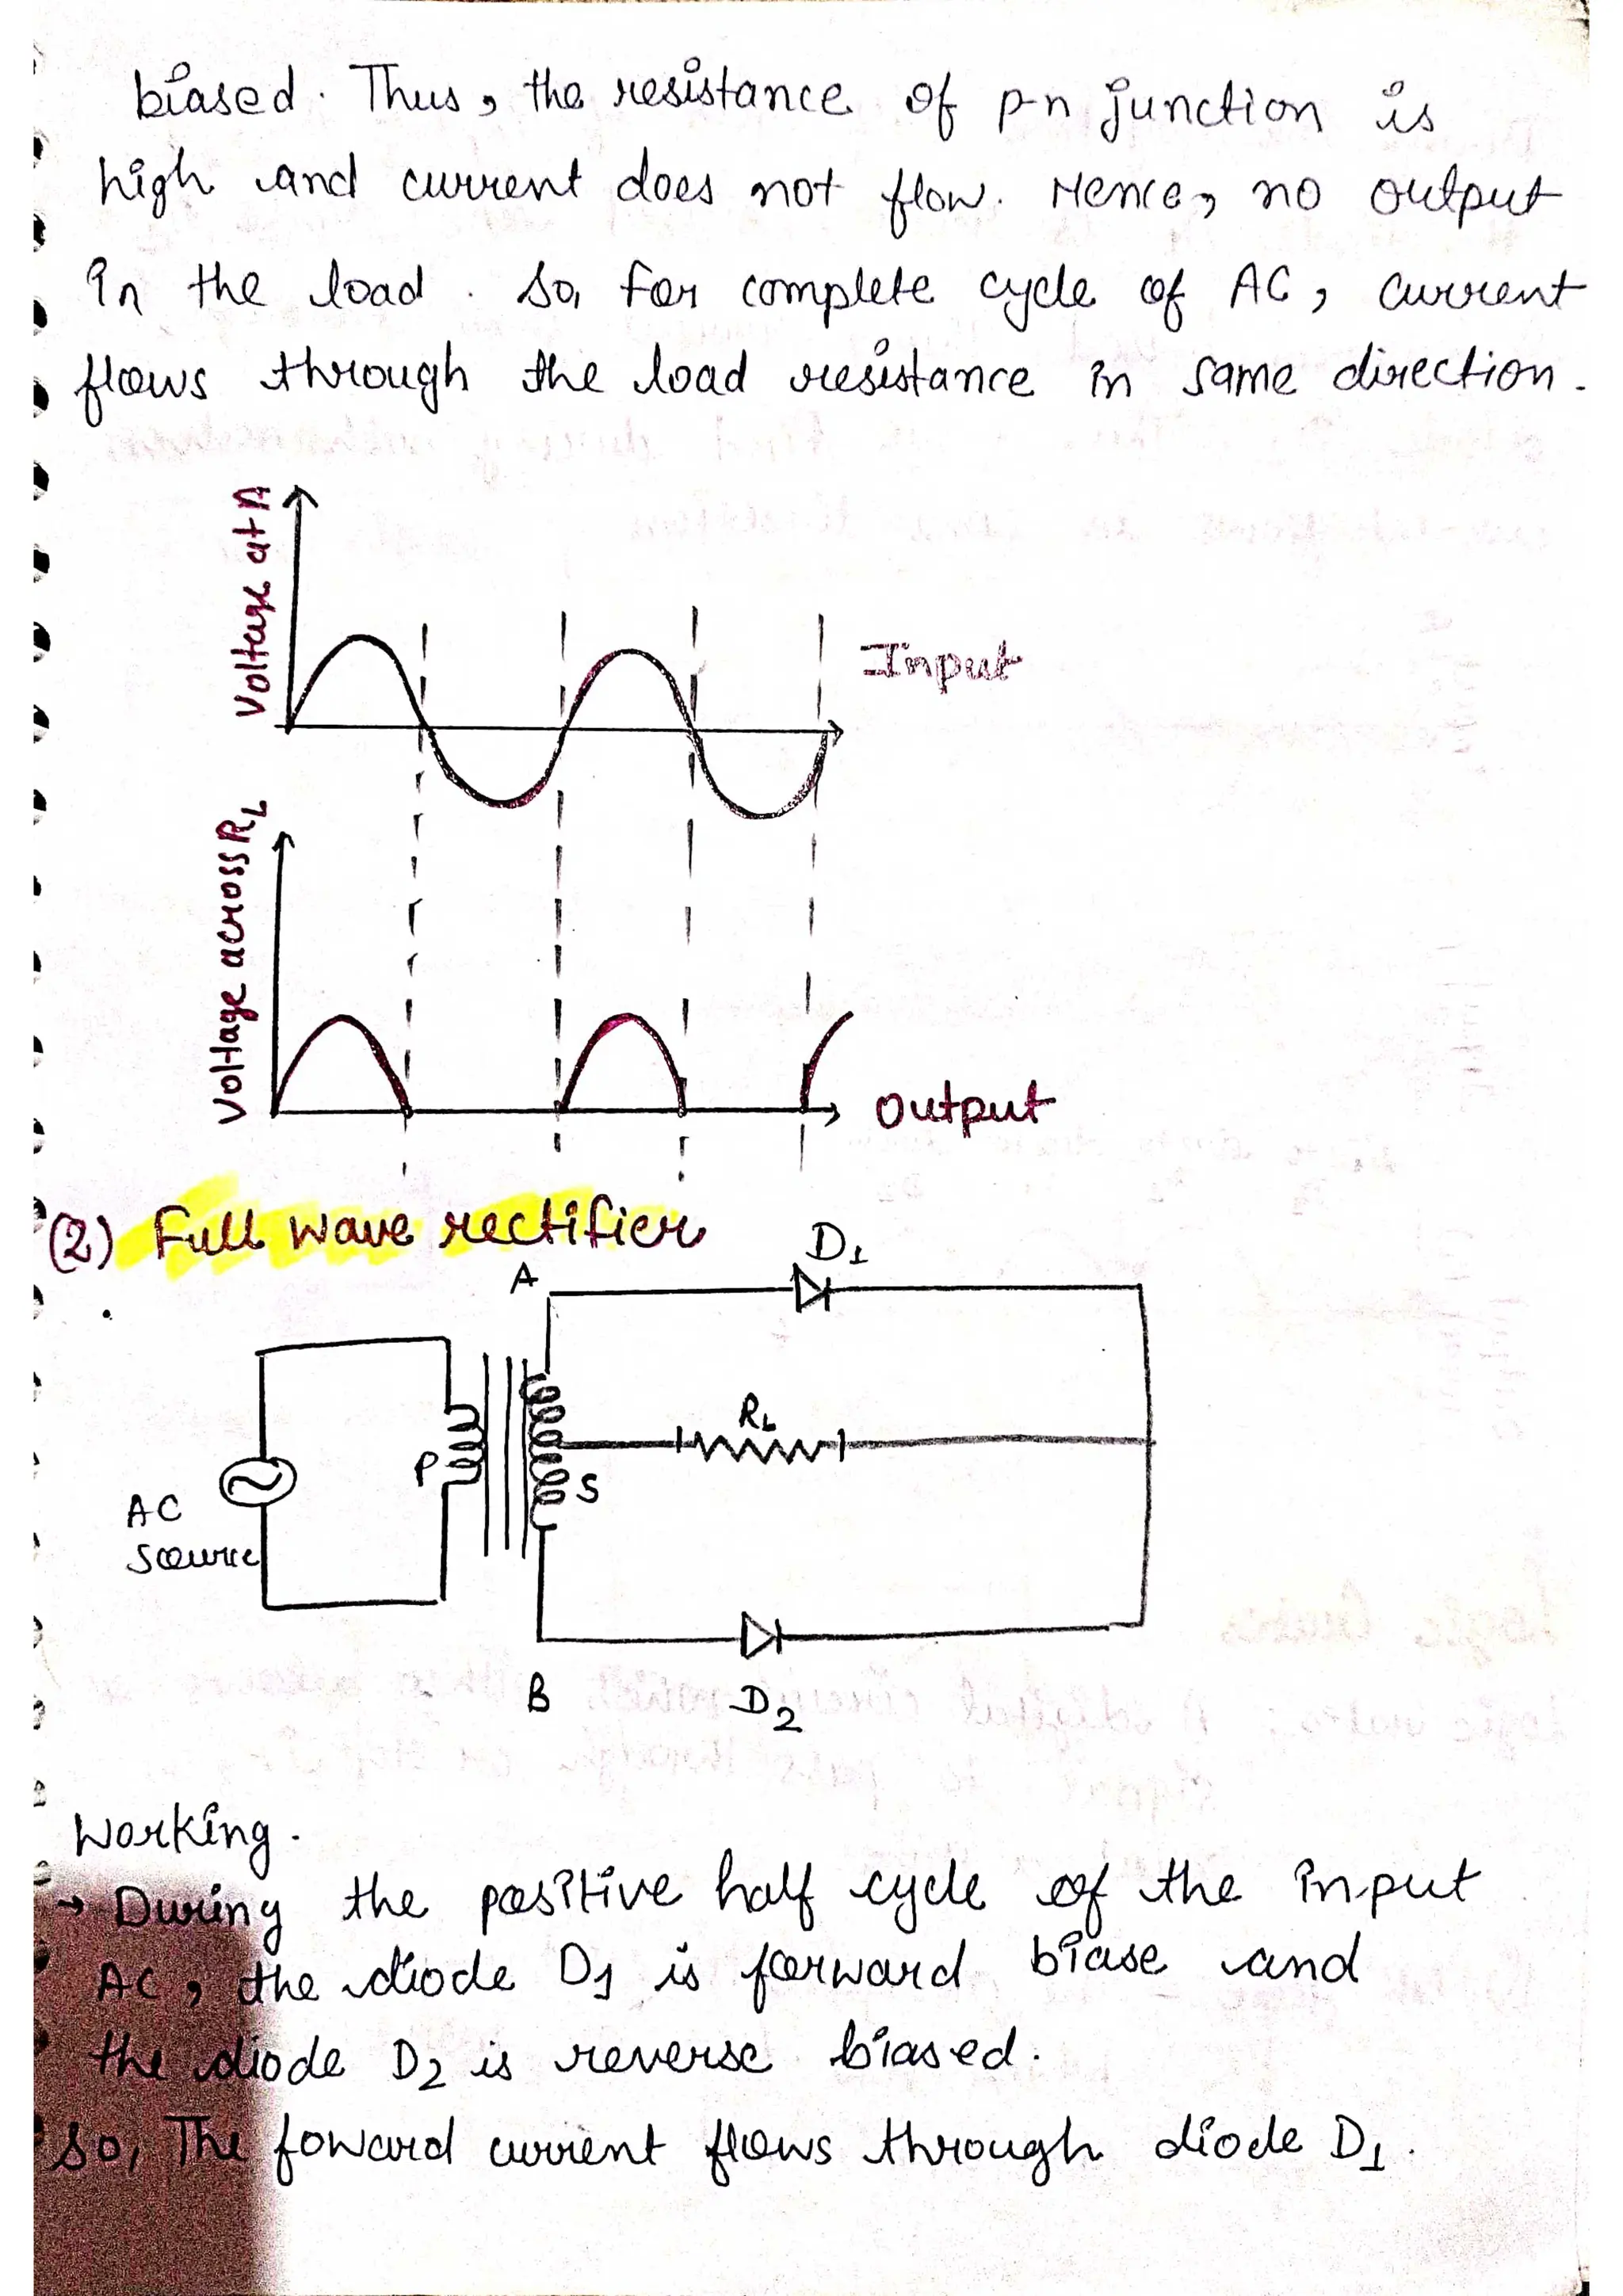 biased. Thus, the resistance of p-n junction is
high and current does not flow. Hence, no output
in the load. So, for complete cycle of AC, current
flows through the load resistance in same direction.
Voltage at A
Input
Voltage across RL
Output
(2) Full wave rectifier
D1
A
RL
P
S
AC
source
B
D2
Working.
→ During the positive half cycle of the input
AC, the diode D1 is forward biase and
the diode D2 is reverse biased.
So, The foward current flows through diode D1.